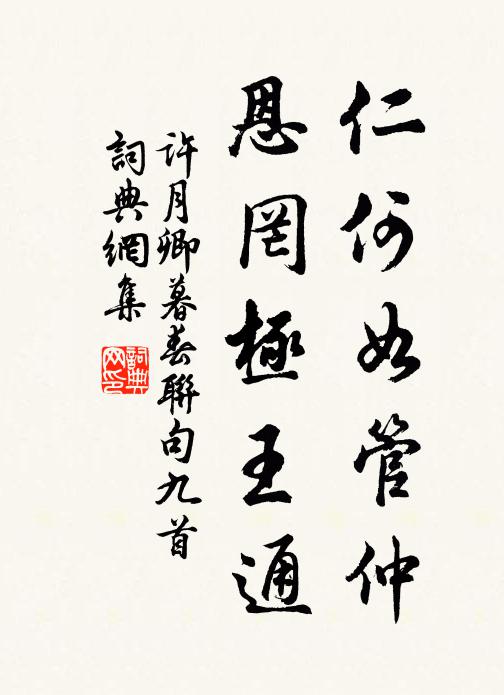 仁何如管仲
恩罔極王通
許月卿暮春聯句九首
詞典網集
詞典网印